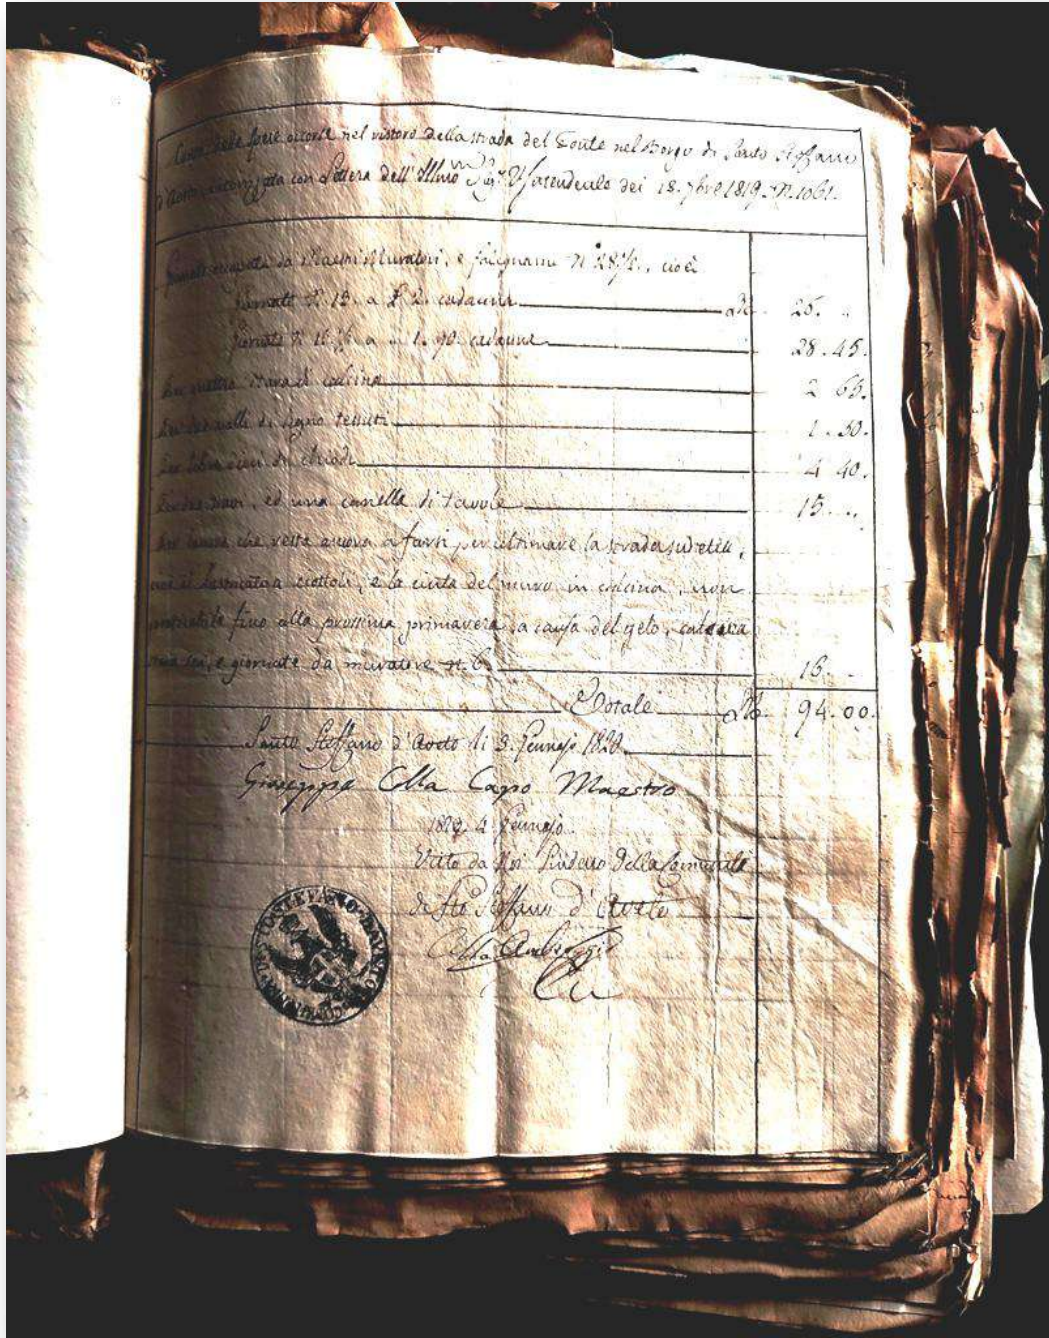 delle spese occorse nel ristoro della strada del Fonte nel Borgo di Santo Steffano
d'Aveto, autorizzata con Lettera dell'Illmo Sigr. Vº Intendente dei 18. 7bre 1819. N. 1061.
Giornate occupate da Maestri Muratori, e falegnami N. 28 1/2., cioè
Giornate N. 13. a £ 2. cadauna 26. "
Giornate N. 15 1/2 a " 1. 90. cadauna 28. 45.
Per quattro stara di calcina 2 65.
Per due valli di legno tessuti 1. 50.
Per libre dieci di chiodi 4 40.
ed una canella di tavole 15. "
Per lavoro che resta ancora a farsi per ultimare la strada sudetta,
cioè il a ciottoli, e la cinta del muro in calcina, non
fino alla prossima primavera a causa del gelo, calcina
stara sei, e giornate da muratore n. 6 16.
Totale 94. 00.
Santo Steffano d'Aveto li 3. Gennajo 1820
Giuseppe Cella Capo Maestro
1820. 4. Gennajo
Visto da Noi Sindaco della Comunità
di Sto Steffano d'Aveto
Cella